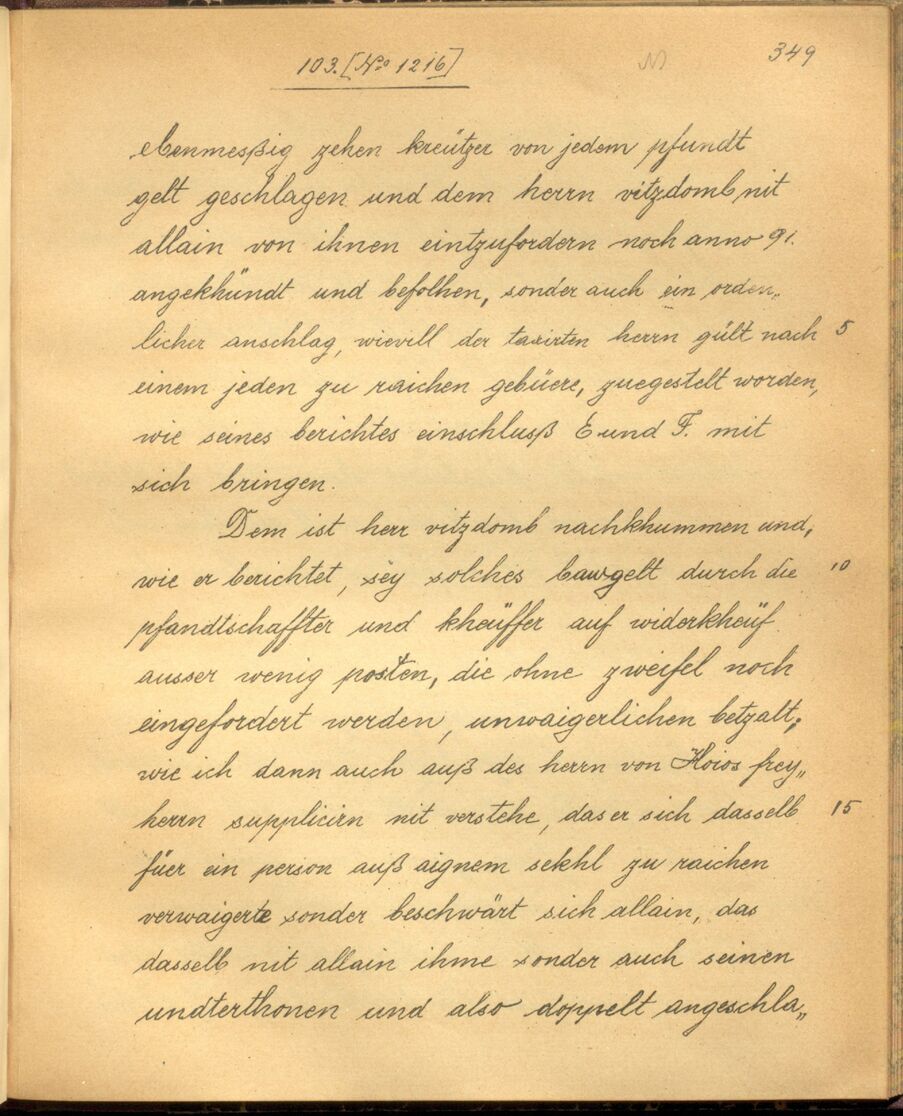 103. [No 1216]
349
ebenmesßig zehen kreützer von jedem pfundt
gelt geschlagen und dem herrn vitzdomb nit
allain von ihnen eintzufordern noch anno 91.
angekhündt und befolhen, sonder auch ein orden„
licher anschlag, wievill der taxirten herrn gült nach 5
einem jeden zu raichen gebüere, zuegestelt worden,
wie seines berichtes einschlusß E und F. mit
sich bringen.
Dem ist herr vitzdomb nachkhummen und,
wie er berichtet, sey solches bawgelt durch die 10
pfandtschaffter und kheüffer auf widerkheüf
ausser wenig posten, die ohne zweifel noch
eingefordert werden, unwaigerlichen betzalt;
wie ich dann auch auß des herrn von Hoios frey„
herrn supplicirn nit verstehe, das er sich dasselb 15
füer ein person auß aignem sekhl zu raichen
verwaigerte sonder beschwärt sich allain, das
dasselb nit allain ihme sonder auch seinen
undterthonen und also doppelt angeschla„